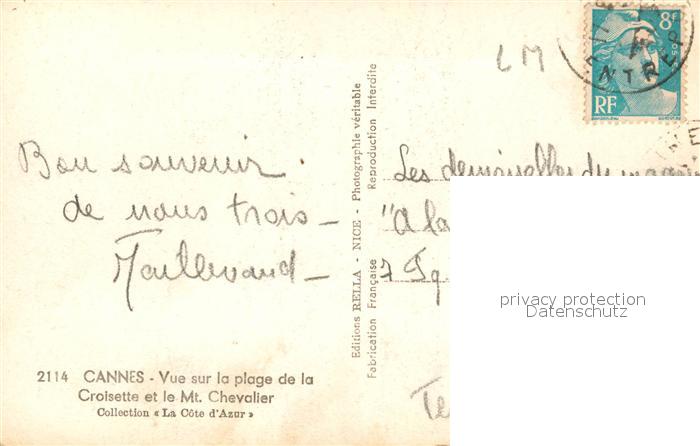 Bon souvenir
de nous trois —
2114 CANNES - Vue sur la plage de la
Croisette et le Mt. Chevalier
Collection « La Côte d'Azur »
Editions RELLA - NICE - Photographie véritable
Fabrication Française Reproduction Interdite
LM
8F
RF
NTRE
Les demoiselles du
"A la
7
privacy protection
Datenschutz